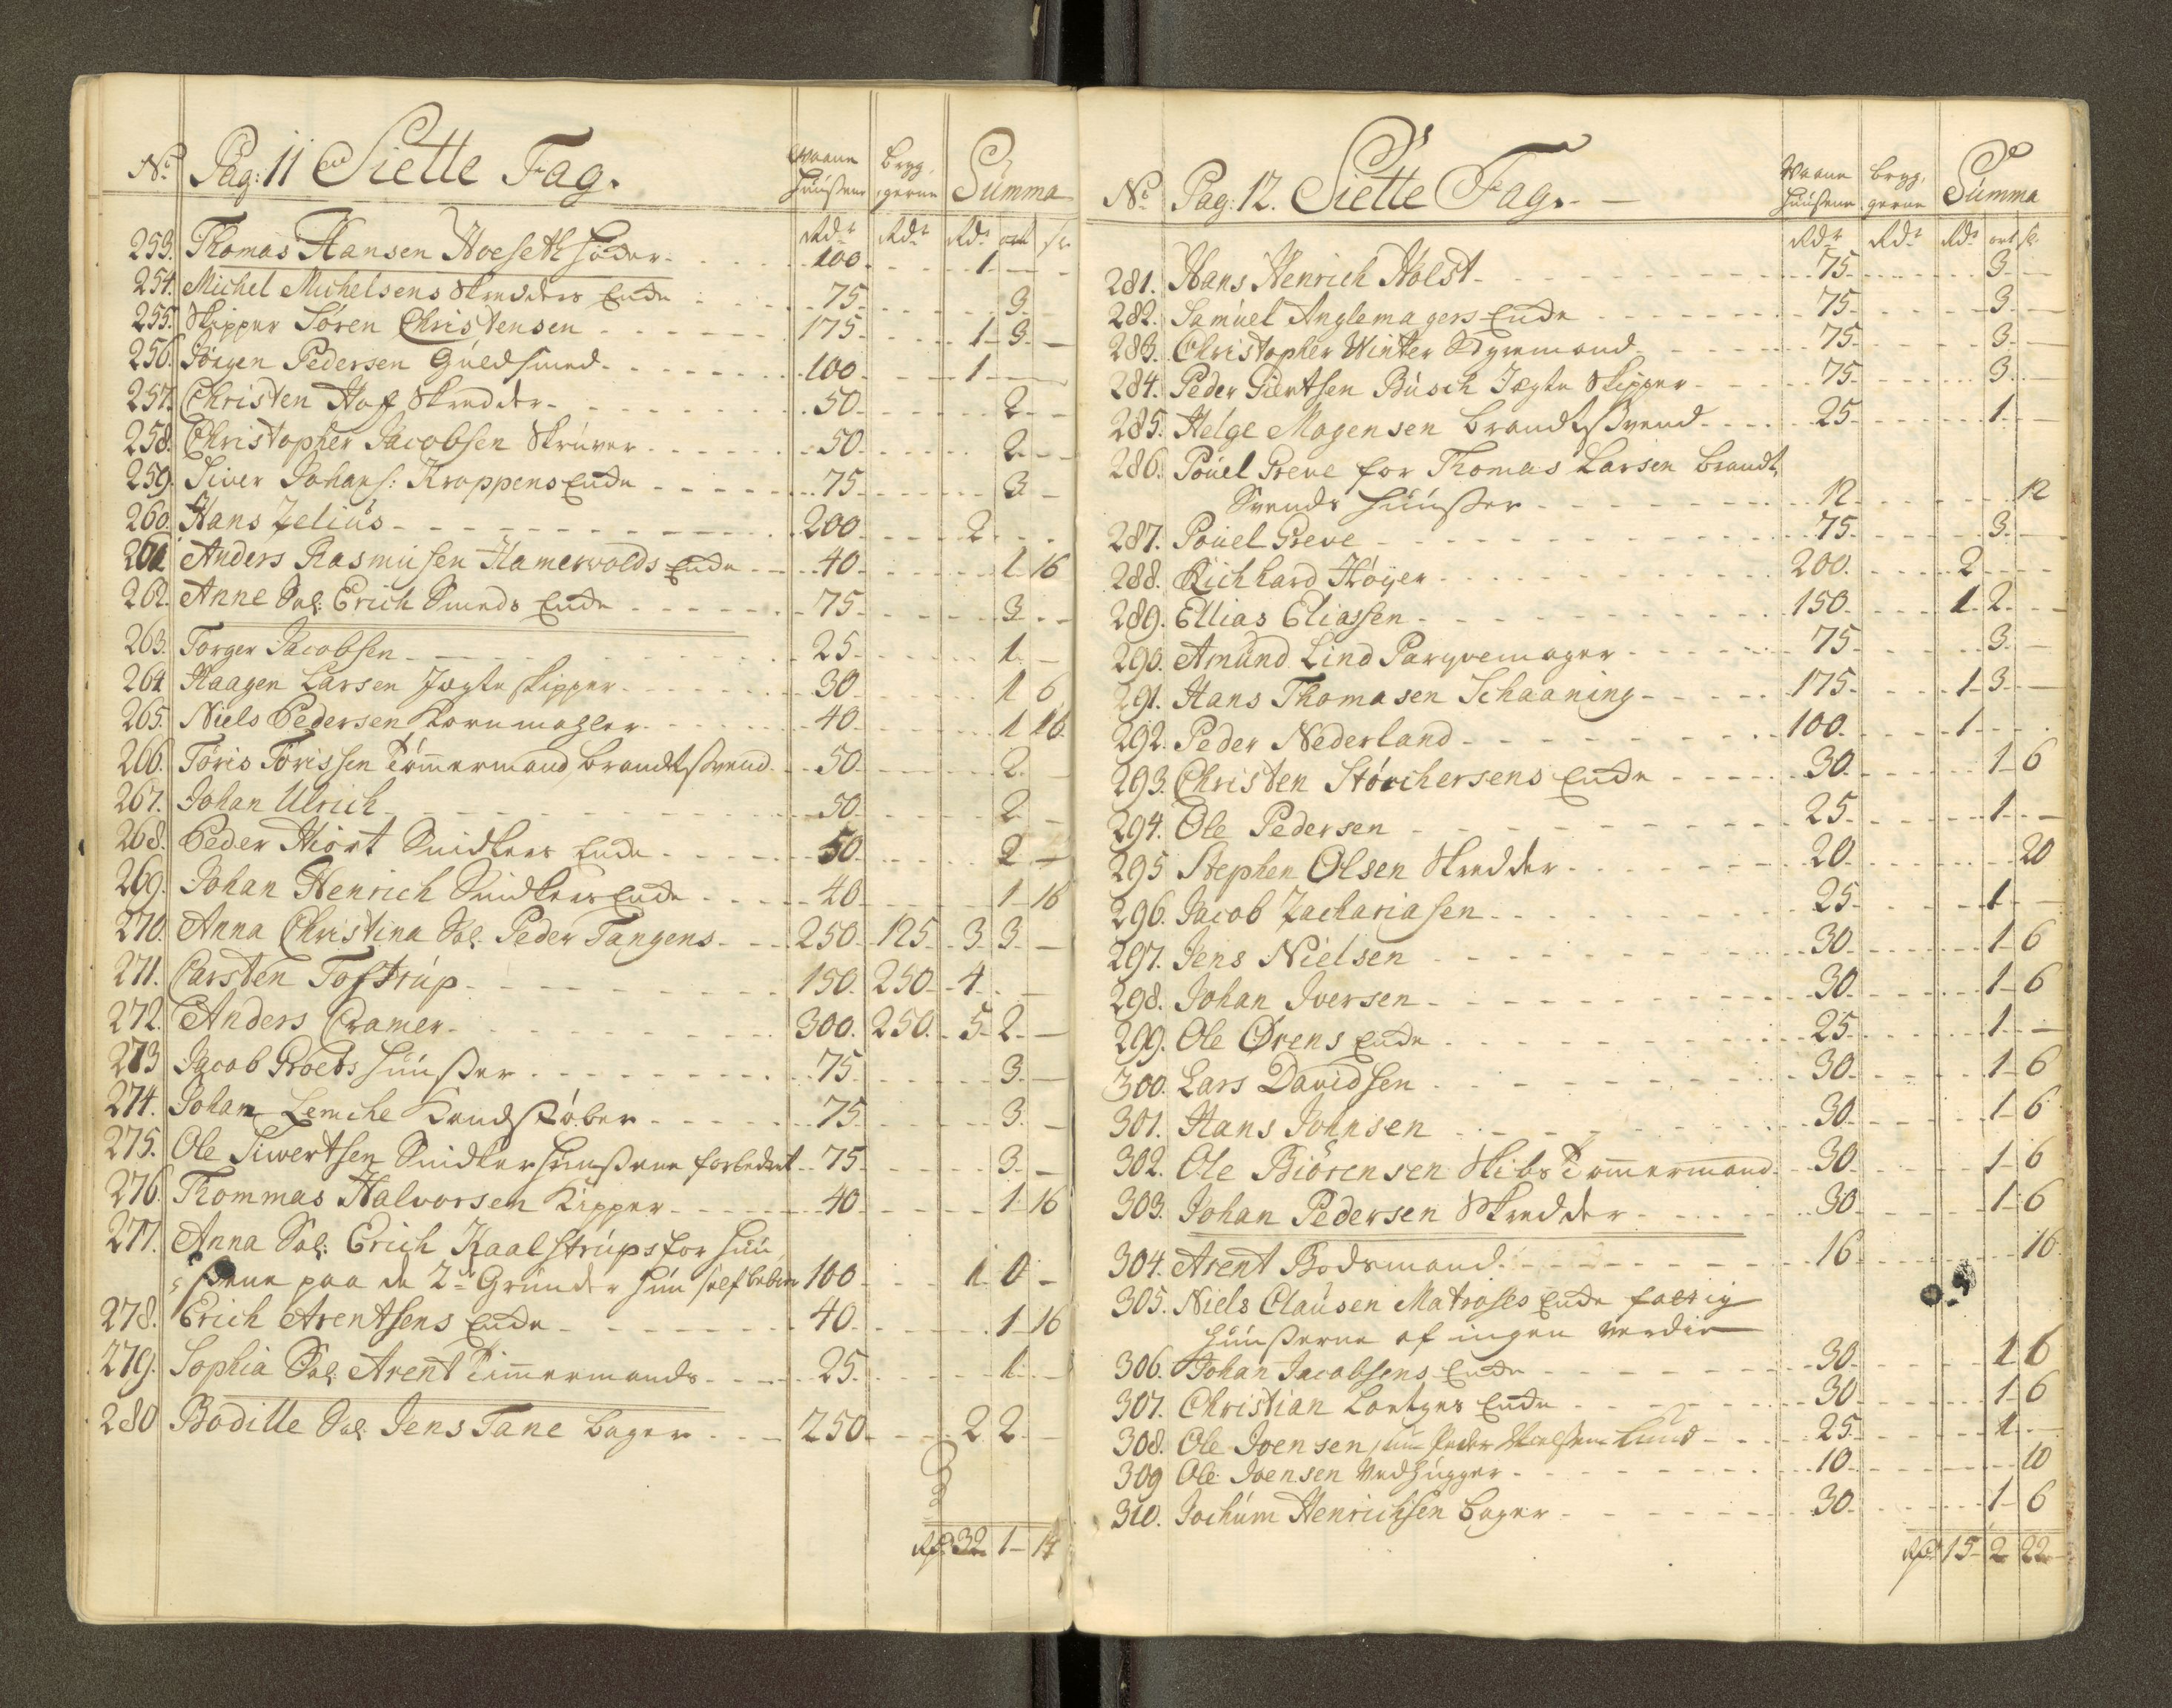 No. Pag: 11 Siette Fag. Waane Huusene Bryg gerne Summa
Rdr Rdr Rdr ort sk
253. Thomas Hansen Hoeseth Høder 100 1
254. Michel Michelsens Skredders Enche 75 3
255. Skipper Søren Christensen 175 1 3
256. Jørgen Pedersen Guldsmed 100 1
257. Christen Hoff Skredder 50 2
258. Christopher Jacobsen Skriver 50 2
259. Siver Johans: Kroppens Enche 75 3
260. Hans Zelius 200 2
261 Anders Rasmusen Hamervolds Enche 40 1 16
262. Anne Sal: Erich Smeds Enche 75 3
263. Torger Jacobsen 25 1
264 Haagen Larsen Jægte skipper 30 1 6
265. Niels Pedersen Kornmaaler 40 1 16
266. Tøris Tørissen Tømmermand, brandtsvend 50 2
267. Johan Ulrich 50 2
268. Peder Hiort Snidkers Enche 50 2
269. Johan Henrich Snidkers Enche 40 1 16
270. Anna Christina Sal. Peder Tangens 250 125 3 3
271. Carsten Tostrup 150 250 4
272. Anders Cramer 300 250 5 2
273 Jacob Proets Huusser 75 3
274. Johan Lemche Kandstøber 75 3
275. Ole Siwertsen Snidker Huussene forbedret 75 3
276. Thommas Halvorsen Kipper 40 1 16
277. Anna Sal: Erich Kaalstrups for Huu
ssene paa de 2de Grunde Hun self beboer 100 1 0
278. Erich Arentsens Enche 40 1 16
279. Sophia Sal: Arent Timmermands 25 1
280 Bodille Sal. Jens Tane bager 250 2 2
Rdr 32 1 14
No. Pag: 12. Siette Fag. Waane Huusene Bryg gerne Summa
Rdr Rdr Rdr ort sk
281. Hans Henrich Holst 75 3
282. Samuel Anglemagers Enche 75 3
283. Christopher Winter Styremand 75 3
284. Peder Giertsen Busch Jægte Skipper 75 3
285. Helge Mogensen brandtsvend 25 1
286. Pouel Preve for Thomas Larsen brandt
Svends Huusser 12 12
287. Pouel Preve 75 3
288. Richhard Høyer 200 2
289. Ellias Eliassen 150 1 2
290. Amund Lind Parqvemager 75 3
291. Hans Thomasen Schaaning 175 1 3
292. Peder Nederland 100 1
293. Christen Størchersens Enche 30 1 6
294. Ole Pedersen 25 1
295 Stephen Olsen Skredder 20 20
296. Jacob Zachariasen 25 1
297. Jens Nielsen 30 1 6
298. Johan Iversen 30 1 6
299. Ole Ørens Enche 25 1
300. Lars Davidsen 30 1 6
301. Hans Johnsen 30 1 6
302. Ole Biörensen Skibs Tømmermand 30 1 6
303. Johan Pedersen Skredder 30 1 6
304. Arent Bodsmand 16 16
305. Niels Clausen Matroses Enche fattig
Huusserne af ingen Verdie
306. Johan Jacobsens Enche 30 1 6
307. Christian Loetzes Enche 30 1 6
308. Ole Ivensen, nu Peder Nielsen Lund 25 1
309 Ole Ivensen Vedhugger 10 10
310. Jochum Henrichsen bager 30 1 6
Rdr 15 2 22